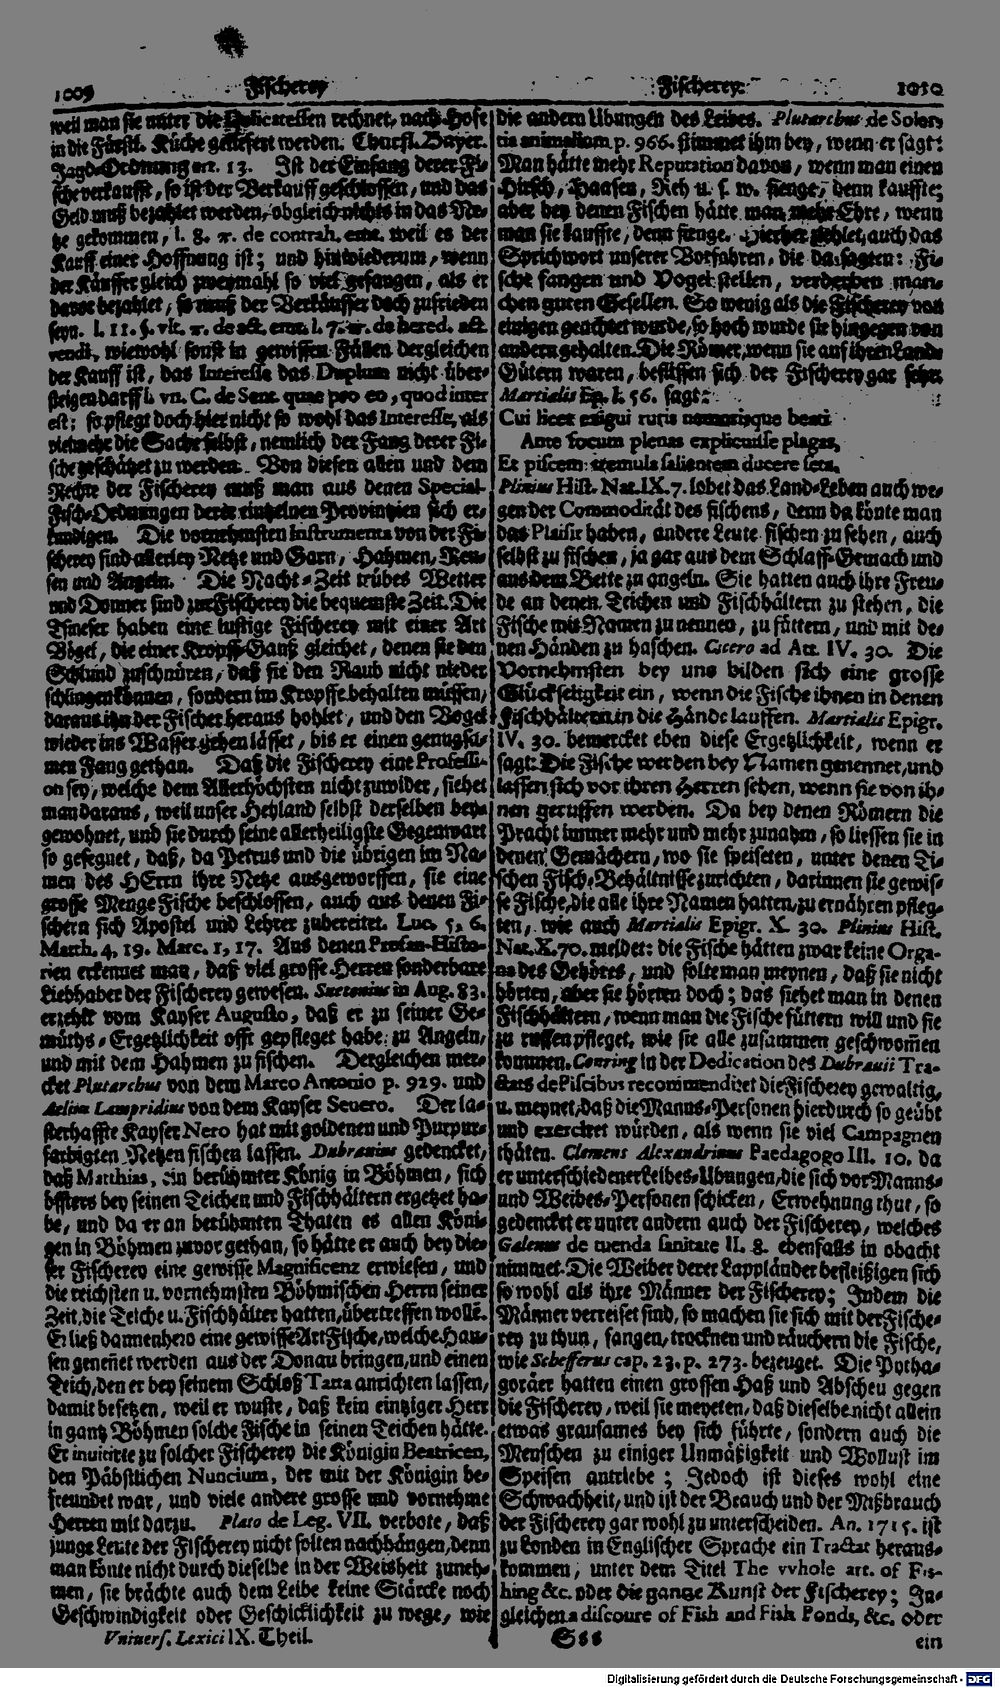 1009 Fischerey
Fischerey 1010
weil man sie unter die Delicatessen rechnet, nach Hofe
in die Fürstl. Küche geliefert werden. Churfl. Bayer.
Jagd-Ordnung art. 13. Ist der Einfang derer Fi-
sche verkaufft, so ist der Verkauff geschlossen, und das
Geld muß bezahlet werden, obgleich nichts in das Ne-
tze gekommen, l. 8. π. de contrah. emt. weil es der
Kauff einer Hoffnung ist; und hinwiederum, wenn
der Käuffer gleich zweymahl so viel gefangen, als er
davor bezahlet, so muß der Verkäuffer doch zufrieden
seyn. l. 11. §. vlt. π. de act. emt. l. 7. π. de hered. act.
vendi, wiewohl sonst in gewissen Fällen dergleichen
der Kauff ist, das Interesse das Duplum nicht über-
steigen darff l. vn. C. de Sent. quae pro eo, quod inter
est: so pflegt doch hier nicht so wohl das Interesse, als
vielmehr die Sache selbst, nemlich der Fang derer Fi-
sche geschätzet zu werden. Von diesen allen und dem
Rechte der Fischerey muß man aus denen Special-
Fisch-Ordnungen derer eintzelnen Provintzien sich er-
kundigen. Die vornehmsten Instrumenta von der Fi-
scherey sind allerley Netze und Garn, Hahmen, Reu-
sen und Angeln. Die Nacht-Zeit trübes Wetter
und Donner sind zur Fischerey die bequemste Zeit. Die
Tsineser haben eine lustige Fischerey mit einer Art
Vögel, die einer Kropff-Ganß gleichet, denen sie den
Schlund zuschnüren, daß sie den Raub nicht nieder
schlingen können, sondern im Kropffe behalten müssen,
daraus ihn der Fischer heraus hohlet, und den Vogel
wieder ins Wasser gehen lässet, bis er einen genugsa-
men Fang gethan. Daß die Fischerey eine Professi-
on sey, welche dem Allerhöchsten nicht zuwider, siehet
man daraus, weil unser Heyland selbst derselben bey-
gewohnet, und sie durch seine allerheiligste Gegenwart
so gesegnet, daß, da Petrus und die übrigen im Na-
men des HErrn ihre Netze ausgeworffen, sie eine
grosse Menge Fische beschlossen, auch aus denen Fi-
schern sich Apostel und Lehrer zubereitet. Luc. 5, 6.
Matth. 4, 19. Marc. 1, 17. Aus denen Profan-Histo-
rien erkennet man, daß viel grosse Herren sonderbare
Liebhaber der Fischerey gewesen. Suetonius in Aug. 83.
erzehlt vom Kayser Augusto, daß er zu seiner Ge-
müths-Ergetzlichkeit offt gepfleget habe zu Angeln,
und mit dem Hahmen zu fischen. Dergleichen mer-
cket Plutarchus von dem Marco Antonio p. 929. und
Aelius Lampridius von dem Kayser Severo. Der la-
sterhaffte Kayser Nero hat mit goldenen und Purpur-
farbigten Netzen fischen lassen. Dubravius gedencket,
daß Matthias, ein berühmter König in Böhmen, sich
öffters bey seinen Teichen und Fischhältern ergetzet ha-
be, und da er an berühmten Thaten es allen Köni-
gen in Böhmen zuvor gethan, so hätte er auch bey die-
ser Fischerey eine gewisse Magnificenz erwiesen, und
die reichsten u. vornehmsten Böhmischen Herrn seiner
Zeit, die Teiche u. Fischhälter hatten, übertreffen wollē.
Er ließ dannenhero eine gewisse Art Fische, welche Hau-
sen geneñet werden aus der Donau bringen, und einen
Teich, den er bey seinem Schloß Tata anrichten lassen,
damit besetzen, weil er wuste, daß kein eintziger Herr
in gantz Böhmen solche Fische in seinen Teichen hätte.
Er invitirte zu solcher Fischerey die Königin Beatricen,
den Päbstlichen Nuncium, der mit der Königin be-
freundet war, und viele andere grosse und vornehme
Herren mit darzu. Plato de Leg. VII. verbote, daß
junge Leute der Fischerey nicht solten nachhängen, denn
man könte nicht durch dieselbe in der Weisheit zuneh-
men, sie brächte auch dem Leibe keine Stärcke noch
Geschwindigkeit oder Geschicklichkeit zu wege, wie
Univers. Lexici IX. Theil.
die andern Übungen des Leibes. Plutarchus de Soler-
tia animalium p. 966. stimmet ihm bey, wenn er sagt:
Man hätte mehr Reputation davon, wenn man einen
Hirsch, Haasen, Reh u. s. w. fienge, denn kauffte;
aber bey denen Fischen hätte man mehr Ehre, wenn
man sie kauffte, denn fienge. Hierher ziehlet auch das
Sprichwort unserer Vorfahren, die da sagten: Fi-
sche fangen und Vogel stellen, verderben man-
chen guten Gesellen. So wenig als die Fischerey von
einigen geachtet wurde, so hoch wurde sie hingegen von
andern gehalten. Die Römer, wenn sie auf ihren Land-
Gütern waren, beflissen sich der Fischerey gar sehr.
Martialis Ep. l. 56. sagt:
Cui licet exigui ruris nemorisque beati
Ante focum plenas explicuisse plagas,
Et piscem tremula salientem ducere seta.
Plinius Hist. Nat. IX. 7. lobet das Land-Leben auch we-
gen der Commodität des fischens, denn da könte man
das Plaisir haben, andere Leute fischen zu sehen, auch
selbst zu fischen, ja gar aus dem Schlaff-Gemach und
aus dem Bette zu angeln. Sie hatten auch ihre Freu-
de an denen Teichen und Fischhältern zu stehen, die
Fische mit Namen zu nennen, zu füttern, und mit de-
nen Händen zu haschen. Cicero ad Att. IV. 30. Die
Vornehmsten bey uns bilden sich eine grosse
Glückseligkeit ein, wenn die Fische ihnen in denen
Fischhältern in die Hände lauffen. Martialis Epigr.
IV. 30. bemercket eben diese Ergetzlichkeit, wenn er
sagt: Die Fische werden bey Namen genennet, und
lassen sich vor ihren Herren sehen, wenn sie von ih-
nen geruffen werden. Da bey denen Römern die
Pracht immer mehr und mehr zunahm, so liessen sie in
denen Gemächern, wo sie speiseten, unter denen Ti-
schen Fisch-Behältnisse zurichten, darinnen sie gewis-
se Fische, die alle ihre Namen hatten, zu ernähren pfleg-
ten, wie auch Martialis Epigr. X. 30. Plinius Hist.
Nat. X. 70. meldet: die Fische hätten zwar keine Orga-
na des Gehöres, und solte man meynen, daß sie nicht
hörten, aber sie hörten doch; das siehet man in denen
Fischhältern, wenn man die Fische füttern will und sie
zu ruffen pfleget, wie sie alle zusammen geschwom̃en
kommen. Conring in der Dedication des Dubravii Tra-
ctats de Piscibus recommendiret die Fischerey gewaltig,
u. meynet, daß die Manns-Personen hierdurch so geübt
und exerciret würden, als wenn sie viel Campagnen
thäten. Clemens Alexandrinus Paedagogo III. 10. da
er unterschiedener Leibes-Übungen, die sich vor Manns-
und Weibes-Personen schicken, Erwehnung thut, so
gedencket er unter andern auch der Fischerey, welches
Galenus de tuenda sanitate II. 8. ebenfalls in obacht
nimmet. Die Weiber derer Lappländer befleißigen sich
so wohl als ihre Männer der Fischerey; Indem die
Männer verreiset sind, so machen sie sich mit der Fische-
rey zu thun, fangen, trocknen und räuchern die Fische,
wie Schefferus cap. 23. p. 273. bezeuget. Die Pytha-
goräer hatten einen grossen Haß und Abscheu gegen
die Fischerey, weil sie meyeten, daß dieselbe nicht allein
etwas grausames bey sich führte, sondern auch die
Menschen zu einiger Unmäßigkeit und Wollust im
Speisen antriebe; Jedoch ist dieses wohl eine
Schwachheit, und ist der Brauch und der Mißbrauch
der Fischerey gar wohl zu unterscheiden. An. 1715. ist
zu Londen in Englischer Sprache ein Tractat heraus-
kommen, unter dem Titel The vvhole art. of Fis-
hing &c. oder die gantze Kunst der Fischerey; In-
gleichen a discoure of Fish and Fish Ponds, &c. oder
Sss
ein
Digitalisierung gefördert durch die Deutsche Forschungsgemeinschaft - DFG